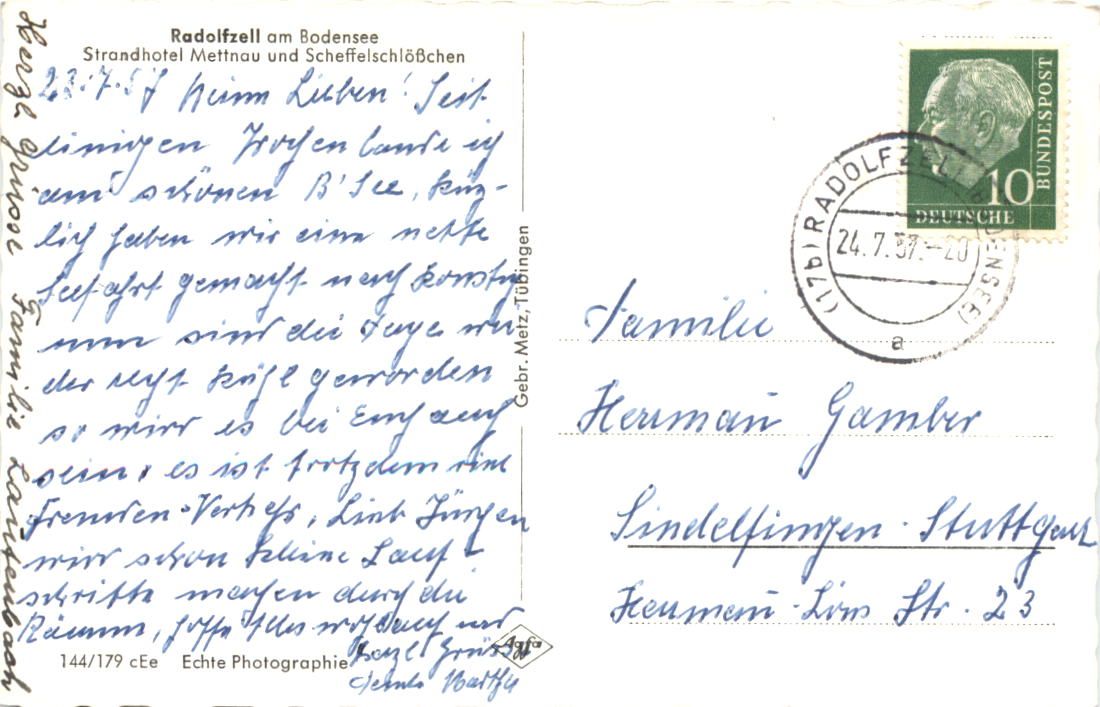 Radolfzell am Bodensee
Strandhotel Mettnau und Scheffelschlößchen
23.7.57 Meine Lieben! Seit
einigen Wochen bin ich
am schönen B'See, kürz-
lich haben wir eine nette
Seefahrt gemacht nach Konstz
nun sind die Tage wie-
der recht kühl geworden
so wird es bei Euch auch
sein, es ist trotzdem viel
Fremden-Verkehr, Lieb Jürgen
wird schon kleine Lauf-
schritte machen durch die
Räume, hoffe Alles wohlauf und
herzl Grüsse
Herzl. Grüsse Familie Lautenbach
144/179 cEe Echte Photographie
Agfa
Gebr. Metz, Tübingen
BUNDESPOST
10
DEUTSCHE
(17b) RADOLFZELL (BODENSEE)
24.7.57.-20
a
Familie
Herrmann Gamber
Sindelfingen-Stuttgart
Herrmann-Löns Str. 23